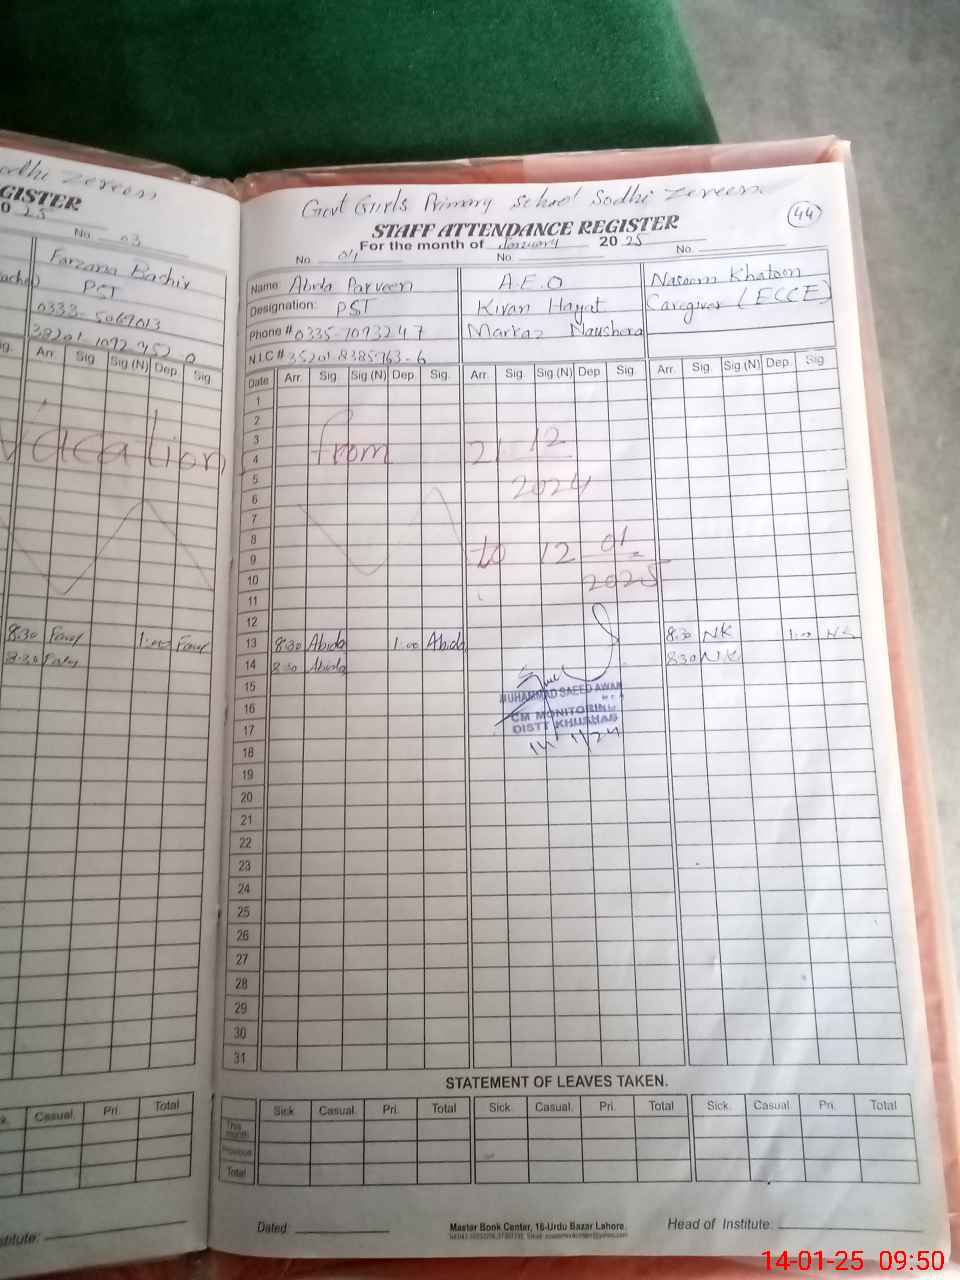 GISTER
20 25
No. 03
Farzana Bashir
PST
0333-5067013
Arr. Sig. Sig.(N) Dep. Sig.
Vacation
8:30 1:00
8:30
Casual. Pri. Total
Govt Girls Primary School Sodhi Zereen
44
STAFF ATTENDANCE REGISTER
For the month of January 20 25
No. 04 No. No.
Name: Abida Parveen A.E.O Naseem Khatoon
Designation: PST Kiran Hayat Caregiver (ECCE)
Phone # 0335-7093247 Markaz Naushera
N.I.C #
Date Arr. Sig. Sig.(N) Dep. Sig. Arr. Sig. Sig.(N) Dep. Sig. Arr. Sig. Sig.(N) Dep. Sig.
1
2
3
4
5
6
7
8
9
10
11
12
from 21 12
2024
to 12 01
2025
13 8:30 Abida 1:00 Abida 8:30 NK 1:00 NK
14 8:30 Abida 8:30 NK
15
16
17
18
MUHAMMAD SAEED AWAN
CM MONITORING
DISTT KHUSHAB
14/1/24
19
20
21
22
23
24
25
26
27
28
29
30
31
STATEMENT OF LEAVES TAKEN.
Sick. Casual. Pri. Total Sick. Casual. Pri. Total Sick. Casual. Pri. Total
This month
Previous
Total
Dated: Master Book Center, 16-Urdu Bazar Lahore. Head of Institute:
14-01-25 09:50